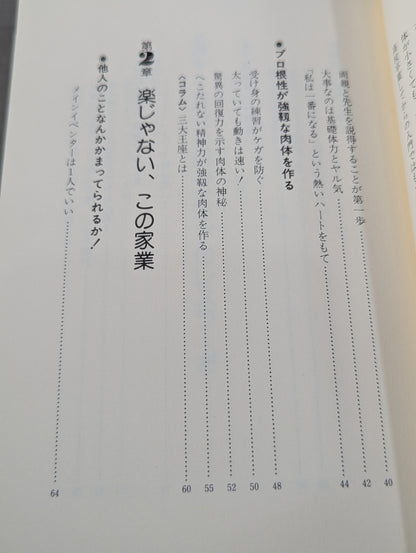 両親と先生を説得することが第一歩 40
大事なのは基礎体力とヤル気 42
「私は一番になる」という熱いハートをもて 44
プロ根性が強靱な肉体を作る
受け身の練習がケガを防ぐ 48
太っていても動きは速い! 50
驚異の回復力を示す肉体の神秘 52
へこたれない精神力が強靱な肉体を作る 55
〈コラム〉三大王座とは 60
第2章 楽じゃない、この家業
他人のことなんかかまってられるか!
メインイベンターは1人でいい 64